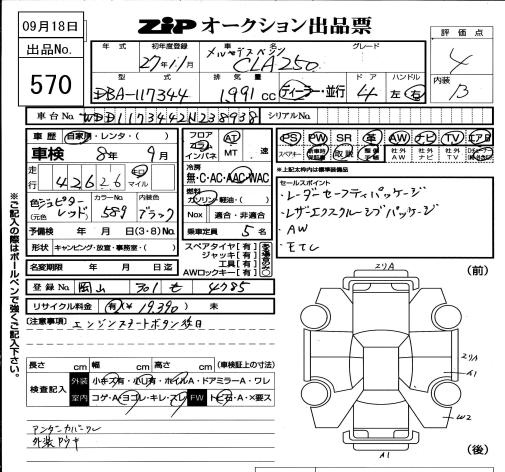 09月18日
ZIP オークション出品票
出品No.
570
評価点
4
内装
B
年式 初年度登録 車名 グレード
27年11月 メルセデスベンツ CLA250
型式 排気量 ドア ハンドル
DBA-117344 1,991 cc ディーラー・並行 4 左 右
車台No. WDD1173442N238938 シリアルNo.
車歴 自家用・レンタ・( )
車検 8年 9月
走行 42626 km マイル
色 ジュピターレッド (元色) カラーNo. 589 内装色 ブラック
予備検 年 月 日(3・8)No.
形状 キャンピング・放置・事務室・( )
名変期限 年 月 日迄
フロア コラム インパネ AT MT 速
冷房 無・C・AC・AAC・WAC
燃料 ガソリン 軽油・( )
Nox 適合・非適合
乗車定員 5名
スペアタイヤ[有]
ジャッキ[有]
工具[有]
AWロックキー[有]
PS PW SR 革 AW ナビ TV エアB
スペアキー 新車時保証書 取説 社外AW 社外ナビ 社外TV
*上記太枠内は標準装備品
セールスポイント
・レーダーセーフティパッケージ
・レザーエクスクルーシブパッケージ
・AW
・ETC
登録No. 岡山 301 せ 4985
リサイクル料金 有(¥19,390) 未
[注意事項] エンジンスタートボタン
長さ cm 幅 cm 高さ cm (車検証上の寸法)
検査記入 外装 小キズ有・小U有・ホイルA・ドアミラーA・ワレ
室内 コゲA・ヨゴレ・キレ・スレ FW トビ石A・X要ス
アンダーカバーワレ
外装
※ご記入の際はボールペンで強くご記入下さい。
(前)
2リA
2リA
A1
W2
A1
(後)